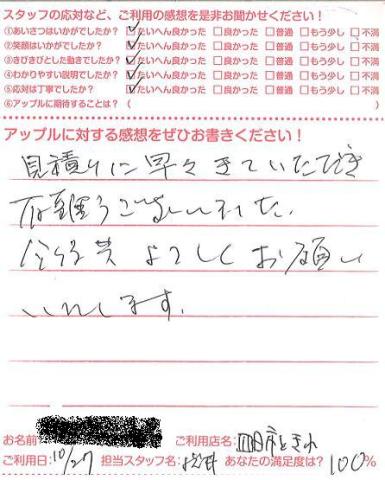 スタッフの応対など、ご利用の感想を是非お聞かせください！
①あいさつはいかがでしたか？ ☑たいへん良かった □良かった □普通 □もう少し □不満
②笑顔はいかがでしたか？ ☑たいへん良かった □良かった □普通 □もう少し □不満
③きびきびとした動きでしたか？ ☑たいへん良かった □良かった □普通 □もう少し □不満
④わかりやすい説明でしたか？ ☑たいへん良かった □良かった □普通 □もう少し □不満
⑤応対は丁寧でしたか？ ☑たいへん良かった □良かった □普通 □もう少し □不満
⑥アップルに期待することは？（
アップルに対する感想をぜひお書きください！
見積りに早々きていただき
有難うございました。
今後共よろしくお願い
いたします。
お名前 ご利用店名: 四日市ときわ
ご利用日: 10/27 担当スタッフ名: あなたの満足度は？ 100%